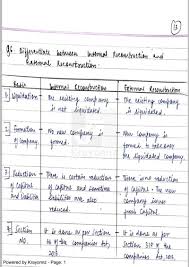 13
Q6. Differentiate between Internal Reconstruction and
External Reconstruction.
Basis Internal Reconstruction External Reconstruction
1) Liquidation - The existing company - The existing company
is not liquidated. is liquidated.
2) Formation - No new company is - New company is
of company. formed. formed to takeover
the liquidated company.
3) Reduction of - There is certain reduction - There is no reduction
Capital and of capital and sometime of capital. The new
liability liabilities are also company issues
reduced. fresh capital.
4) Section - It is done as per section - It is done as per
NO. of the companies Act, section of the
companies Act,
Powered by Kreyonnz - Page: 1